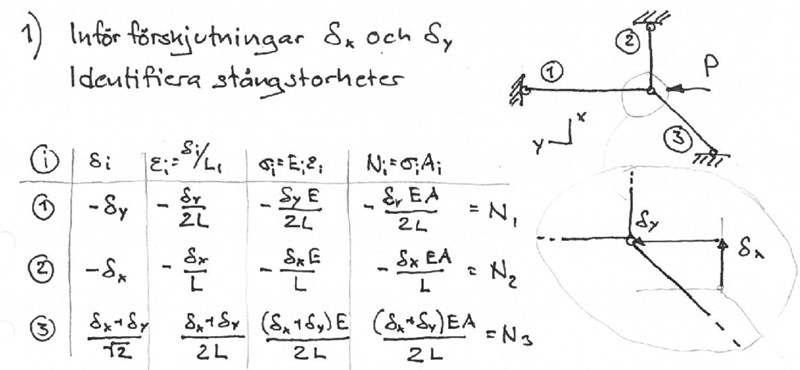 1) Inför förskjutningar δx och δy
Identifiera stångstorheter
1 2 3 P
x
y
i δi εi=δi/Li σi=Eiεi Ni=σiAi
1 -δy -δy/2L -δyE/2L -δyEA/2L = N1
2 -δx -δx/L -δxE/L -δxEA/L = N2
3 δx+δy/√2 δx+δy/2L (δx+δy)E/2L (δx+δy)EA/2L = N3
δy δx